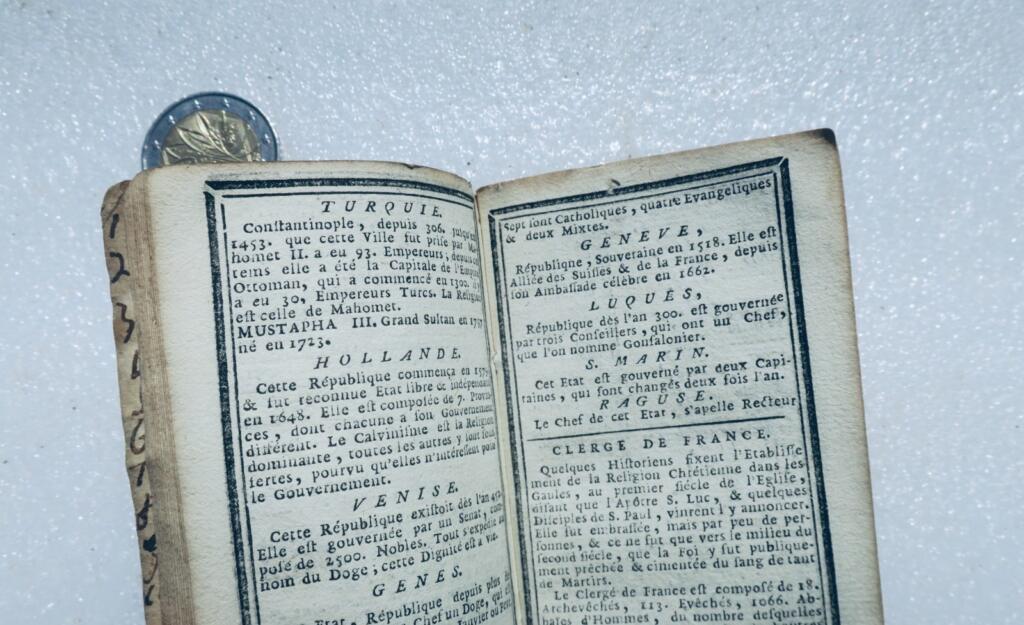 TURQUIE.
Conſtantinople, depuis 306. juſqu'en
1453. que cette Ville fut priſe par
homet II. a eu 93. Empereurs; depuis ce
tems elle a été la Capitale de l'Empire
Ottoman, qui a commencé en 1300. il y
a eu 30, Empereurs Turcs. La Religion
eſt celle de Mahomet.
MUSTAPHA III. Grand Sultan en 1757
né en 1723.
HOLLANDE.
Cette République commença en 1579.
& fut reconnue Etat libre & indépendant
en 1648. Elle eſt compoſée de 7. Provin-
ces, dont chacune a ſon Gouvernement
différent. Le Calviniſme eſt la Religion
dominante, toutes les autres y ſont
fertes, pourvu qu'elles n'intéreſſent point
le Gouvernement.
VENISE.
Cette République exiſtoit dès l'an
Elle eſt gouvernée par un Senat, com-
poſé de 2500. Nobles. Tout s'expédie au
nom du Doge; cette Dignité eſt à vie.
GENES.
Etat, République depuis plus
Chef un Doge, qui
Janvier ou
Sept ſont Catholiques, quatre Evangeliques
& deux Mixtes.
GENEVE,
République, Souveraine en 1518. Elle eſt
Alliée des Suiſſes & de la France, depuis
ſon Ambaſſade célèbre en 1662.
LUQUES,
République dès l'an 300. eſt gouvernée
par trois Conſeillers, qui ont un Chef,
que l'on nomme Gonfalonier.
S. MARIN.
Cet Etat eſt gouverné par deux Capi-
taines, qui ſont changés deux fois l'an.
RAGUSE.
Le Chef de cet Etat, s'apelle Recteur
CLERGE DE FRANCE.
Quelques Hiſtoriens fixent l'Etabliſſe
ment de la Religion Chrétienne dans les
Gaules, au premier ſiécle de l'Egliſe,
diſant que l'Apôtre S. Luc, & quelques
Diſciples de S. Paul, vinrent l'y annoncer.
Elle fut embraſſée, mais par peu de per-
ſonnes, & ce ne fut que vers le milieu du
ſecond ſiécle, que la Foi y fut publique-
ment prêchée & cimentée du ſang de tant
de Martirs.
Le Clergé de France eſt compoſé de 18.
Archevêchés, 113. Evêchés, 1066. Ab-
bayes d'Hommes, du nombre deſquelles